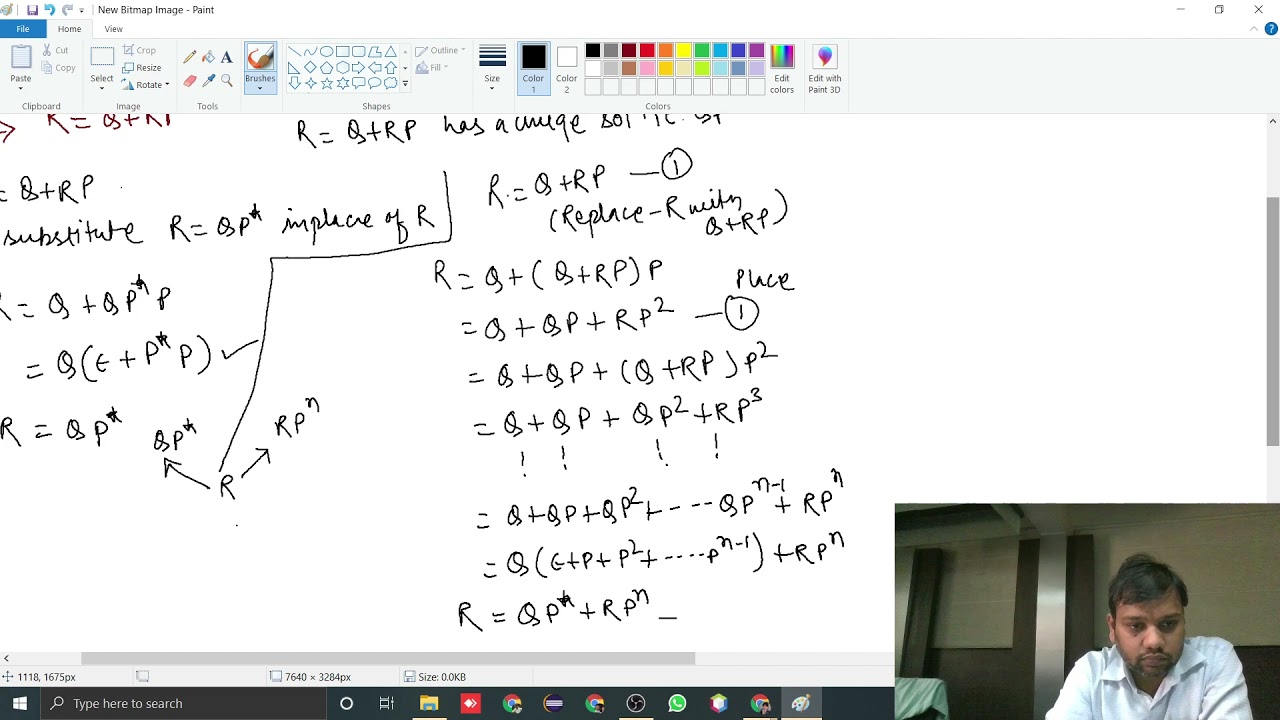 New Bitmap Image - Paint
File
Home
View
Paste
Cut
Copy
Clipboard
Select
Crop
Resize
Rotate
Image
Tools
A
Brushes
Outline
Fill
Shapes
Size
Color 1
Color 2
Colors
Edit colors
Edit with Paint 3D
R = Q+RP
R = Q+RP has a
= Q+RP
substitute R = QP* inplace of R
R = Q + QP*P
= Q(ε + P*P)
R = QP*
QP*
RPⁿ
R
R = Q+RP — ①
(Replace - R with Q+RP)
R = Q + (Q+RP)P
Place
= Q + QP + RP² — ①
= Q + QP + (Q+RP)P²
= Q + QP + QP² + RP³
! ! ! !
= Q+QP+QP²+ ---- QPⁿ⁻¹ + RPⁿ
= Q(ε+P+P²+ ····· Pⁿ⁻¹) + RPⁿ
R = QP* + RPⁿ —
1118, 1675px
7640 × 3284px
Size: 0.0KB
Type here to search